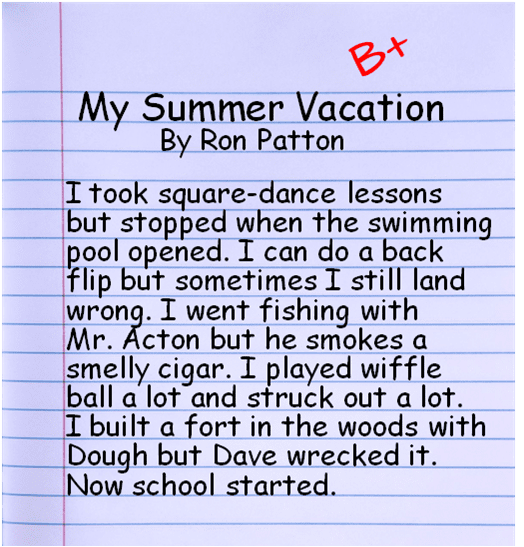 B+
My Summer Vacation
By Ron Patton
I took square-dance lessons
but stopped when the swimming
pool opened. I can do a back
flip but sometimes I still land
wrong. I went fishing with
Mr. Acton but he smokes a
smelly cigar. I played wiffle
ball a lot and struck out a lot.
I built a fort in the woods with
Dough but Dave wrecked it.
Now school started.